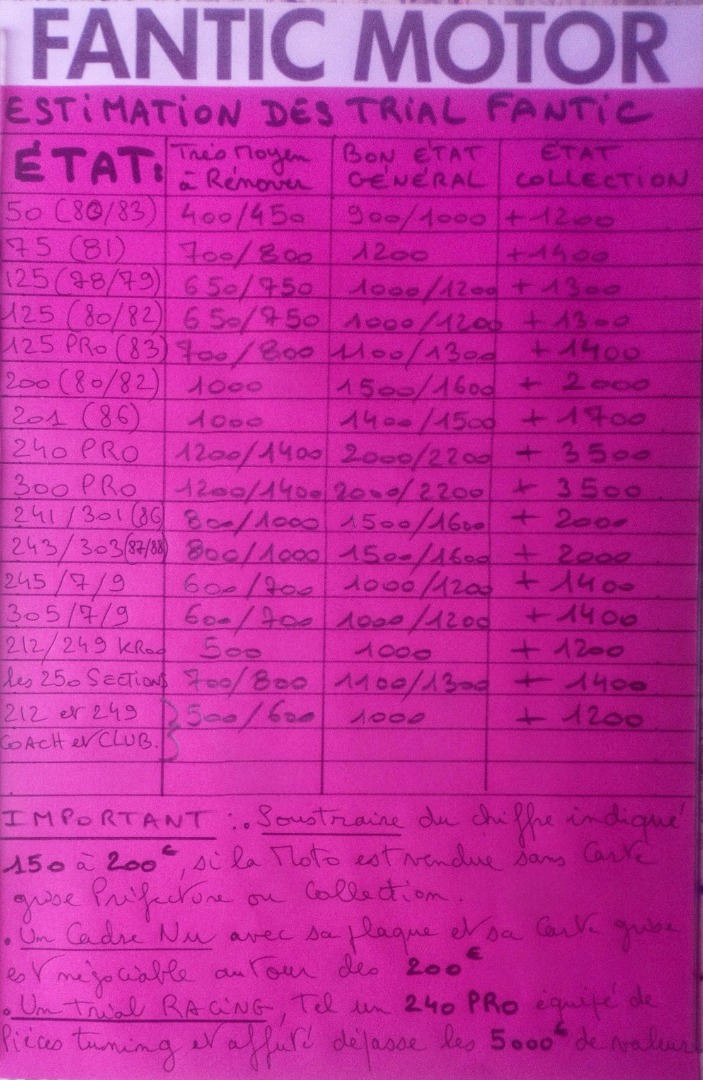 FANTIC MOTOR
ESTIMATION DES TRIAL FANTIC
ÉTAT: Très Moyen à Rénover BON ÉTAT GÉNÉRAL ÉTAT COLLECTION
50 (80/83) 400/450 900/1000 +1200
75 (81) 700/800 1200 +1400
125 (78/79) 650/750 1000/1200 +1300
125 (80/82) 650/750 1000/1200 +1300
125 PRO (83) 700/800 1100/1300 +1400
200 (80/82) 1000 1500/1600 + 2000
201 (86) 1000 1400/1500 + 1700
240 PRO 1200/1400 2000/2200 + 3500
300 PRO 1200/1400 2000/2200 + 3500
241/301 (86) 800/1000 1500/1600 + 2000
243/303 (87/88) 800/1000 1500/1600 + 2000
245/7/9 600/700 1000/1200 + 1400
305/7/9 600/700 1000/1200 +1400
212/249 KRoo 500 1000 + 1200
les 250 SECTIONS 700/800 1100/1300 + 1400
212 et 249 500/600 1000 + 1200
COACH et CLUB.
IMPORTANT :. Soustraire du chiffre indiqué
150 à 200€, si la Moto est vendue sans Carte
grise Préfecture ou Collection.
. Un Cadre Nu avec sa plaque et sa Carte grise
est négociable autour des 200€
. Un Trial RACING, Tel un 240 PRO équipé de
Pièces tuning et affuté dépasse les 5000€ de valeur